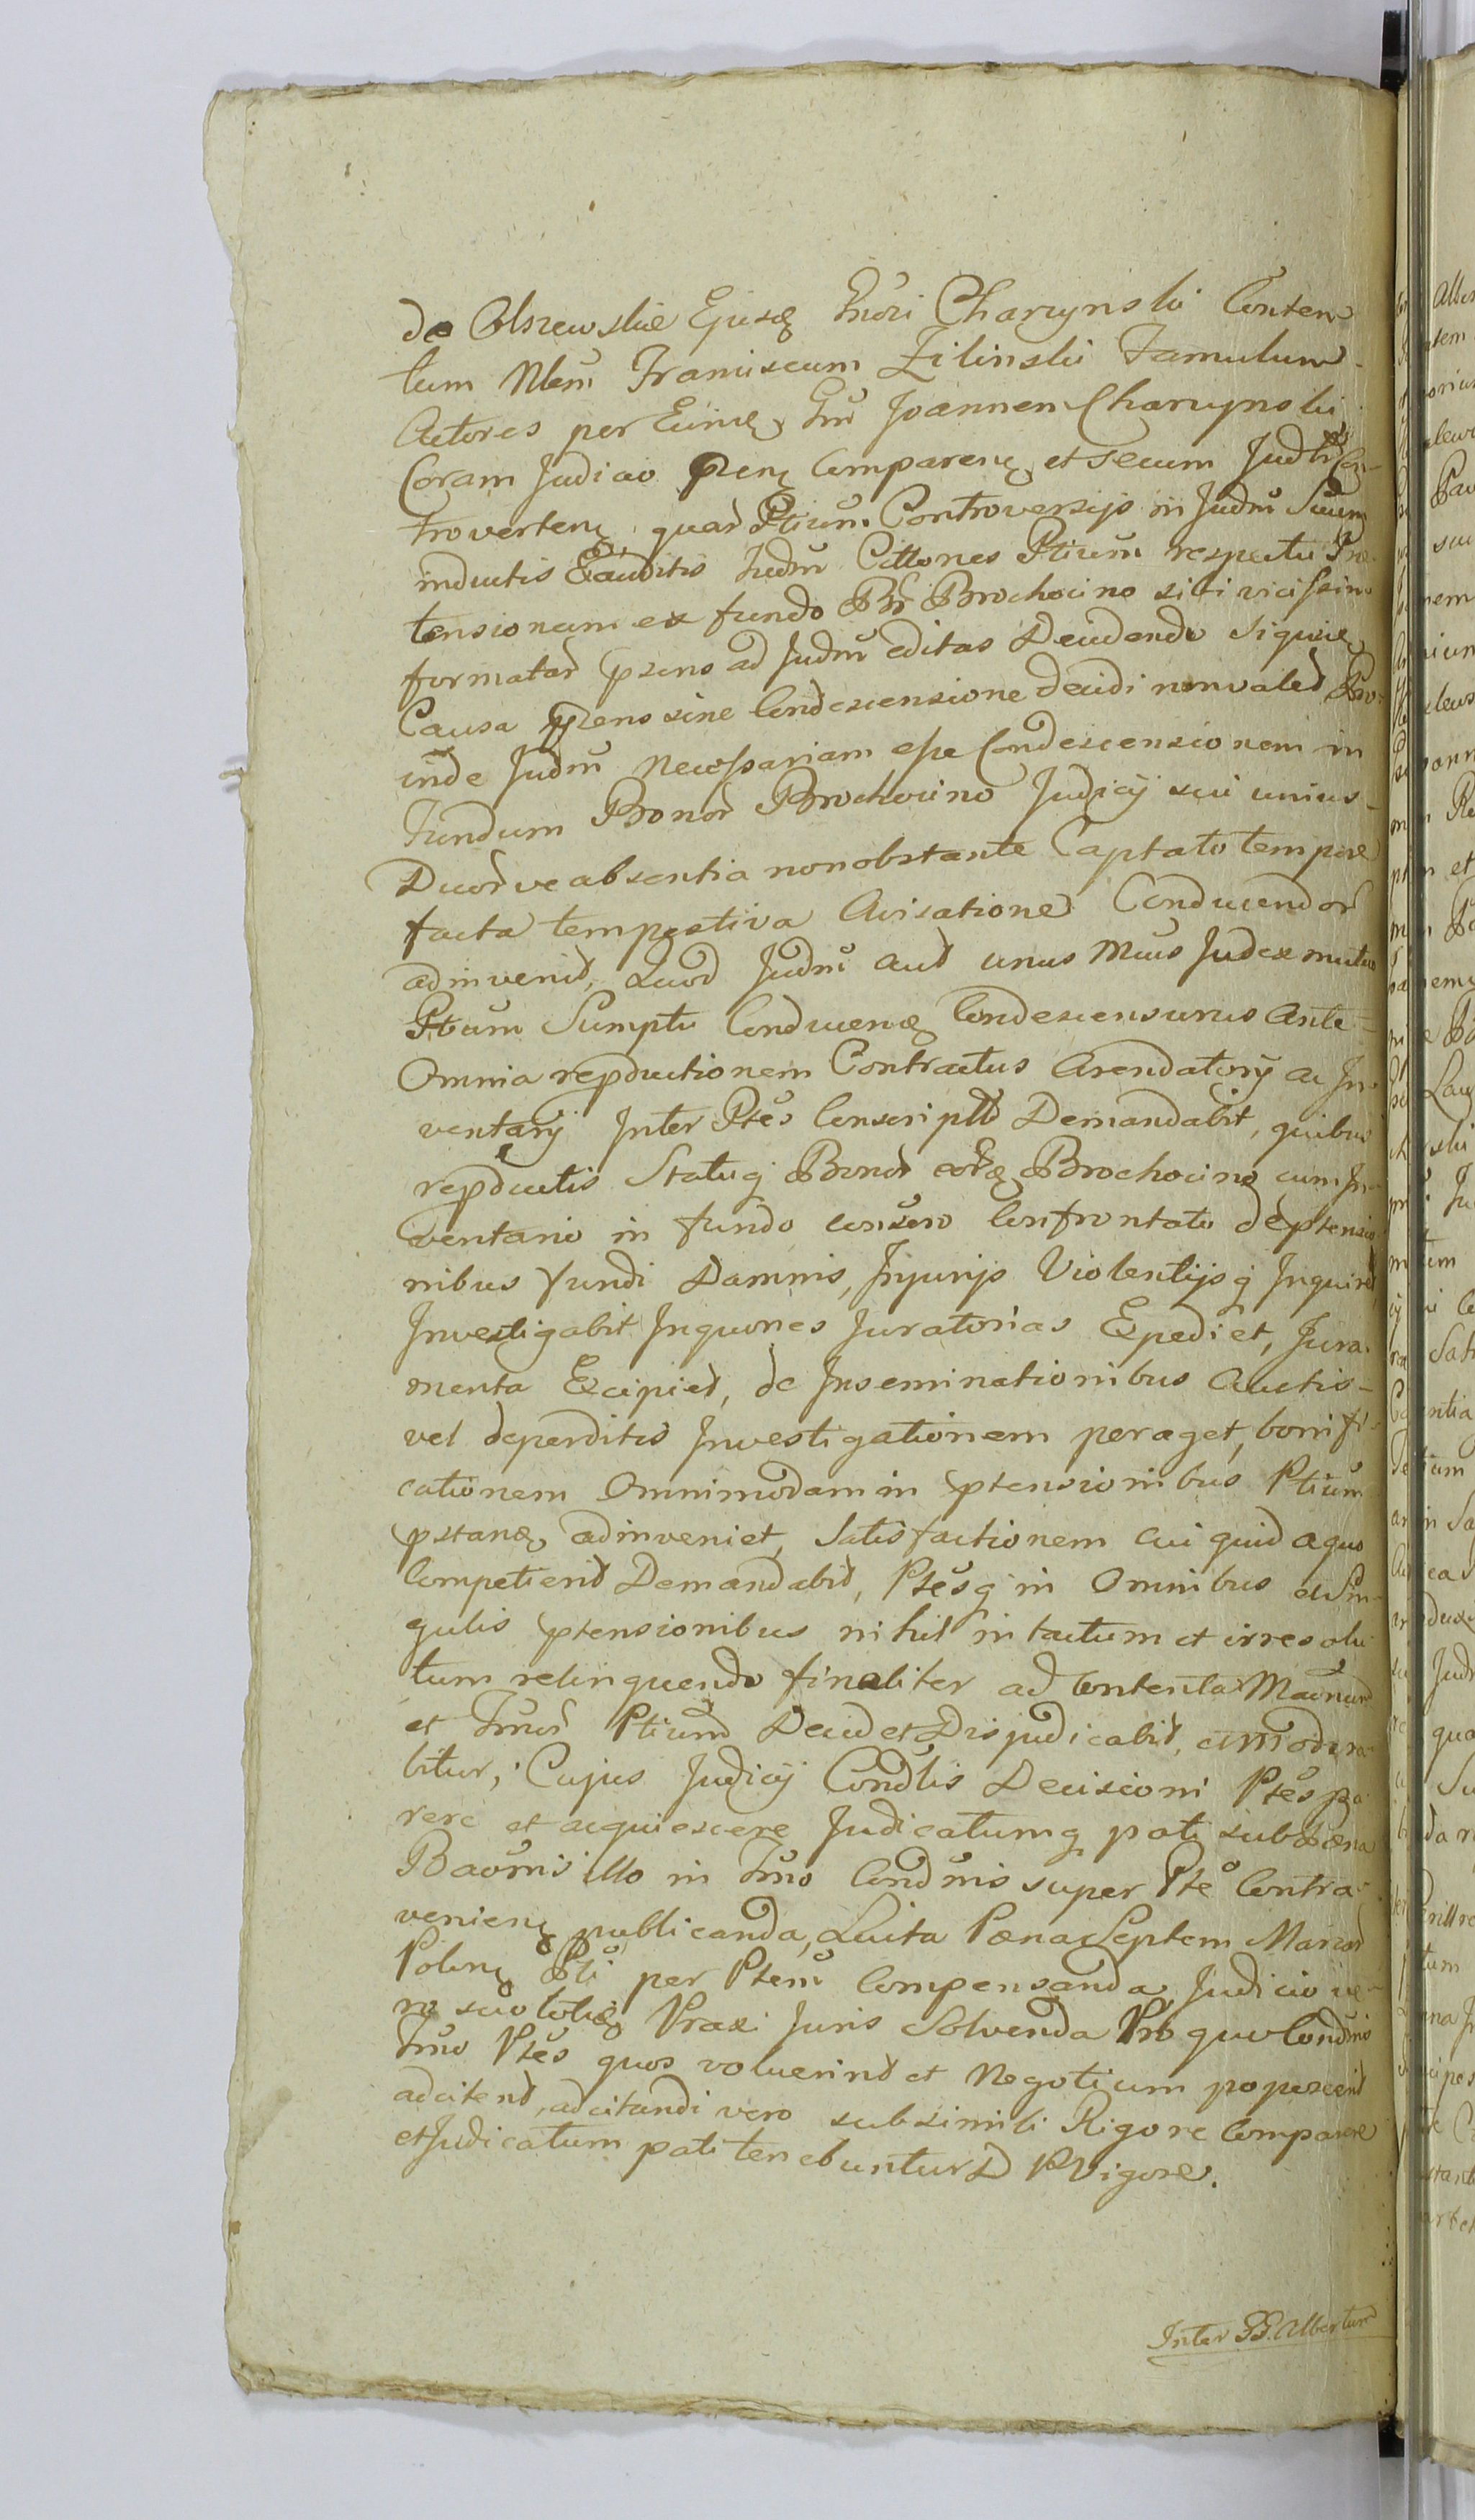 de Olszewskie Ejusq Gnosi Charzynski Conten-
tum Nlem̃ Franciscum Zilinski Famulum
Actores per Eũnq Gm̃ Joannem Charzynski
Coram Judicio p̃senq Comparenq et secum Judlr̃ Con-
trovertenq, quar̃ Ptium̃ Controversijs in Judm̃ Suum
inductis Exauditis Judm̃ Cittones Ptium̃ respectu Præ-
tensionum ex fundo Br̃ Brochocino sibi vicissim
formatar̃ p̃sens ad Judm̃ editas Decidendo Siquiq
Causa p̃sens sine Condescensione decidi non valet Pro-
inde Judm̃ Necessariam esse Condescensionem in
Fundum Bonor̃ Brochocino Judicij sui unius
Duor̃ve absentia non obstante Captato tempore
facta tempestiva Avisatione Conducendor̃
adinvenit, Quod Judm̃ aut unus Mũus Judex mutuo
Ptium Sumptu Conducenq Condescensurus Ante
Omnia reproductionem Contractus Arendatorij ac In-
ventarij Inter Ptes Conscript̃ Demandabit, quibus
repductis Statuq Bonor̃ eorq Brochocino cum In-
ventario in fundo conserto Confrontato de ptensio
nibus fundi Damnis, Injurijs Violentijsq Inquiret
Investigabit Inquones Juratorias Expediet, Jura-
menta Excipiet, de Inseminationibus Auctis
vel deperditis Investigationem peraget, bonifi-
cationem Omnimodam in ptensionibus Ptium
pstanq adinveniet, Satisfactionem Cui quid a quo
Competierit Demandabit, Ptesq in Omnibus et Sin-
gulis ptensionibus nihil intactum et irresolu
tum relinquendo finaliter ad Contenta Mañum
et Jmũs Ptium̃ Decidet Disjudicabit, cum̃odera-
bitur, Cujus Judicij Condlis Decisioni Ptes pa
rere et acquiescere Judicatumq pati sub pæna
Baõmis illo in Jmño Condñis super Pte Contra
venienq publicanda, Luita Pæna Septem Marcar̃
Polonq Pti per Ptem̃ Compensanda, Judicio ve-
ro suo totieq Praxi Juris Solvenda Pro quo Condñis
Jmño Ptes quos voluerint et Negotium poposcerit
adcitent, adcitandi vero sub simili Rigore Comparere
et Judicatum pati tenebuntur D P Vigore.
Inter GG. Albertum